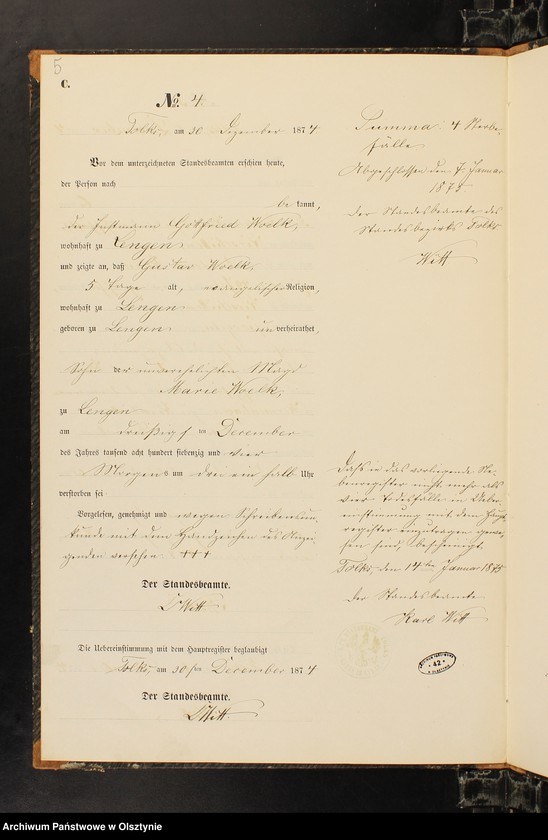 5
C.
No. 4
Tolks, am 30 Dezember 1874
Vor dem unterzeichneten Standesbeamten erschien heute,
der Person nach
bekannt,
der Instmann Gottfried Woelk,
wohnhaft zu Lengen
und zeigte an, daß Gustav Woelk,
5 Tage alt, evangelischer Religion,
wohnhaft zu Lengen
geboren zu Lengen unverheirathet,
Sohn der unverehelichten Magd
Marie Woelk,
zu Lengen
am dreißigsten December
des Jahres tausend acht hundert siebenzig und vier
Morgens um drei ein halb Uhr
verstorben sei
Vorgelesen, genehmigt und wegen Schreibensun-
kunde mit dem Handzeichen des Anzei-
genden versehen +++
Der Standesbeamte.
Witt
Die Uebereinstimmung mit dem Hauptregister beglaubigt
Tolks, am 30ten December 1874
Der Standesbeamte.
Witt.
Summa: 4 Sterbe-
fälle
Abgeschlossen den 7. Januar
1875
Der Standesbeamte des
Standesbezirks Tolks
Witt
Daß in das vorliegende Ne-
benregister nicht mehr als
vier Todesfälle in Ueber-
einstimmung mit dem Haupt-
register einzutragen gewe-
sen sind, bescheinigt.
Tolks, den 14ten Januar 1875
Der Standesbeamte
Karl Witt
42
Archiwum Państwowe w Olsztynie